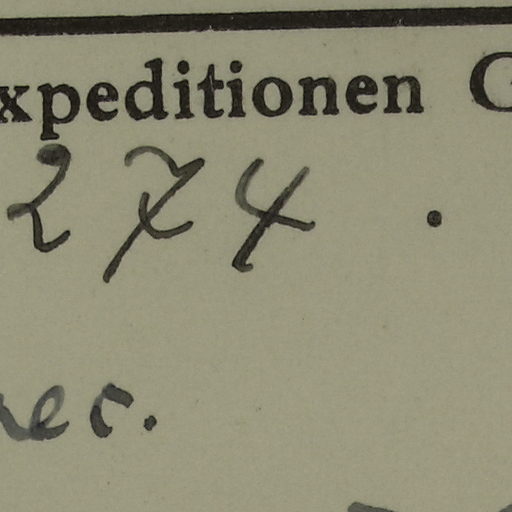 xpeditionen G
274 .
ec.